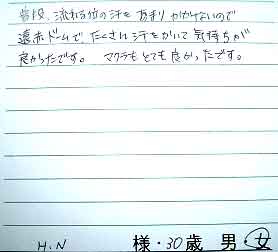 普段、流れる位の汗をあまりかけないので
遠赤ドームでたくさん汗をかいて気持ちが
良かったです。 マクラもとても良かったです。
H.N 様・30歳 男・女